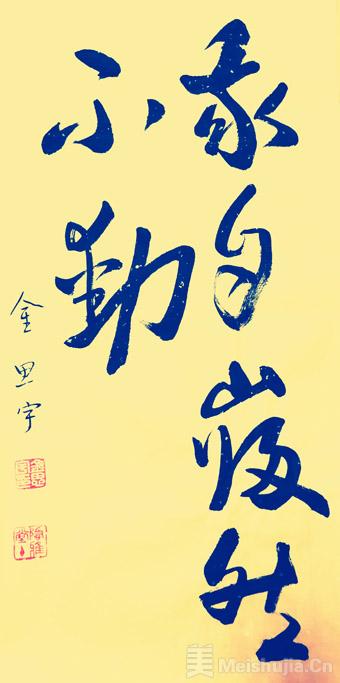 我自巋然
不動
金思宇
美 Meishujia.Cn